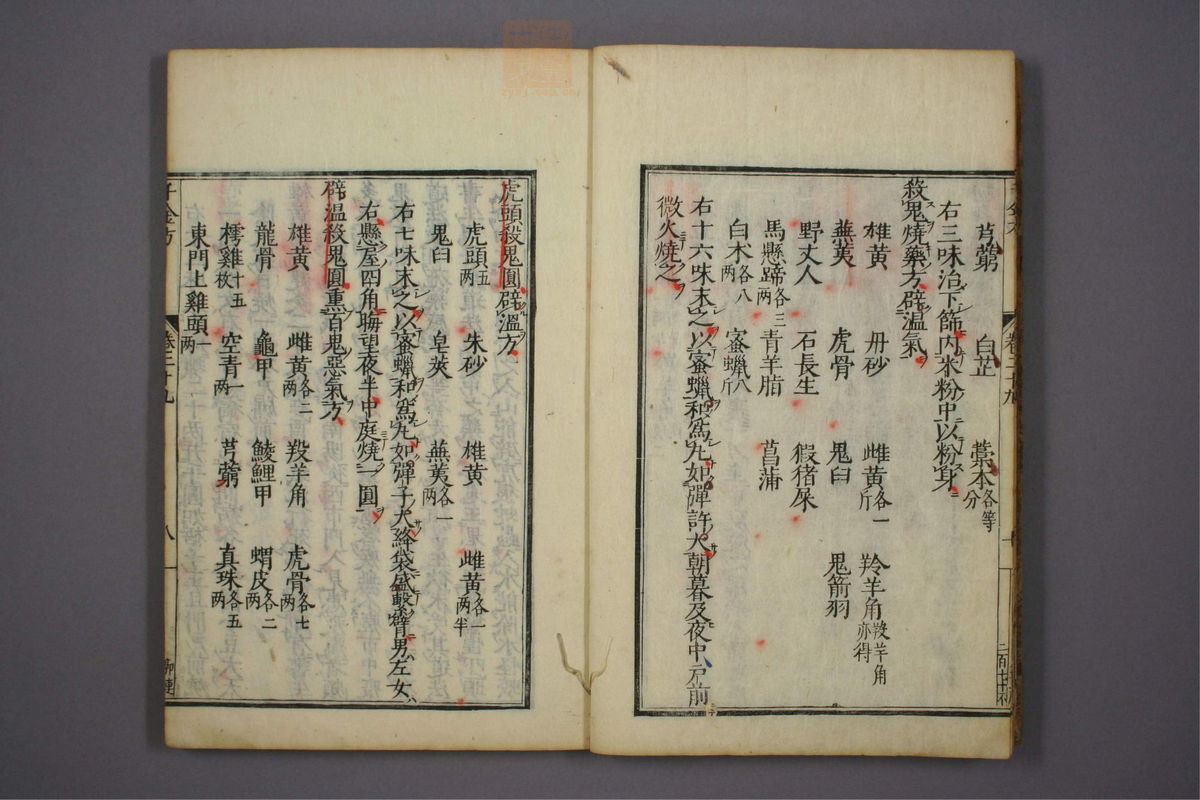 芎藭 白芷 藁本各等分
右三味治下篩內米粉中以粉身
殺鬼燒藥方辟溫氣
雄黃 丹砂 雌黃各一斤 羚羊角羖羊角亦得
蕪荑 虎骨 鬼臼 鬼箭羽
野丈人 石長生 猳猪屎
馬懸蹄各三两 青羊脂 菖蒲
白朮各八两 蜜蠟八斤
右十六味末之以蜜蠟和爲丸如彈許大朝暮及夜中戶前
微火燒之
虎頭殺鬼圓辟溫方
虎頭五两 朱砂 雄黃 雌黃各一两半
鬼臼 皁莢 蕪荑各一两
右七味末之以蜜蠟和爲丸如彈子大絳袋盛繫臂男左女
右懸屋四角晦望夜半中庭燒一圓
辟溫殺鬼圓熏百鬼惡氣方
雄黃 雌黃各二两 羖羊角 虎骨各七两
龍骨 龜甲 鯪鯉甲 蝟皮各二两
樗雞十五枚 空青一两 芎藭 真珠各五两
東門上雞頭一两
千金方 卷二十九 八